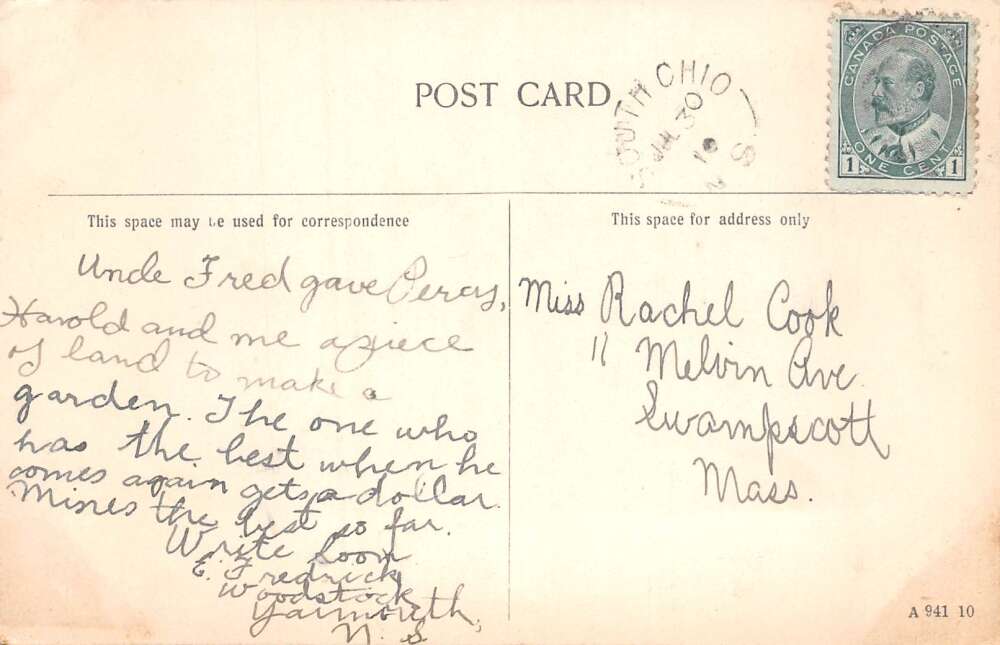 POST CARD
SOUTH OHIO
N S
JUL 30
10
CANADA POSTAGE
1 ONE CENT 1
This space may be used for correspondence
Uncle Fred gave Percy,
Harold and me a piece
of land to make a
garden. The one who
has the best when he
comes again gets a dollar.
Mines the best so far.
Write Soon
E. Fredrick
Woodstock
Yarmouth,
N. S
This space for address only
Miss Rachel Cook
11 Melvin Ave.
Swampscott
Mass.
A 941 10